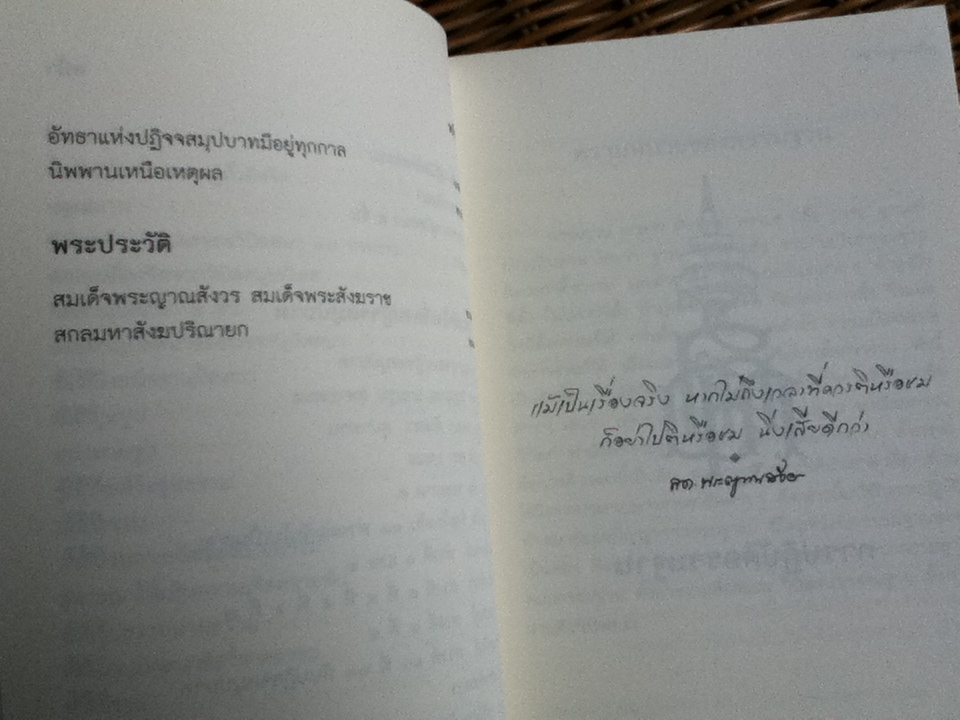 อัทธาแห่งปฏิจจสมุปบาทมีอยู่ทุกกาล
นิพพานเหนือเหตุผล
พระประวัติ
สมเด็จพระญาณสังวร สมเด็จพระสังฆราช
สกลมหาสังฆปริณายก
แม้เป็นเรื่องจริง หากไม่ถึงเวลาที่ควรติหรือชม
ก็อย่าไปติหรือชม นิ่งเสียดีกว่า